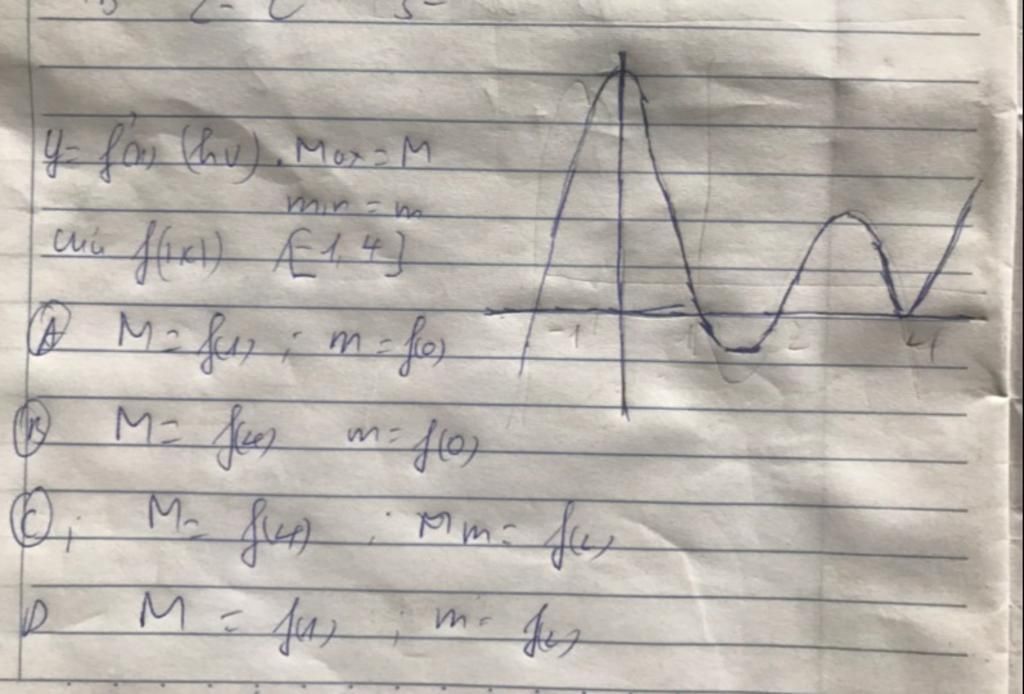 y = f'(x) (hv). Max = M
min = m
của f(|x|) /[-1,4]
-1 1 2 4
A M = f(1) ; m = f(0)
B M = f(4) m = f(0)
C ; M = f(4) ; M m = f(2)
D M = f(1) ; m = f(2)